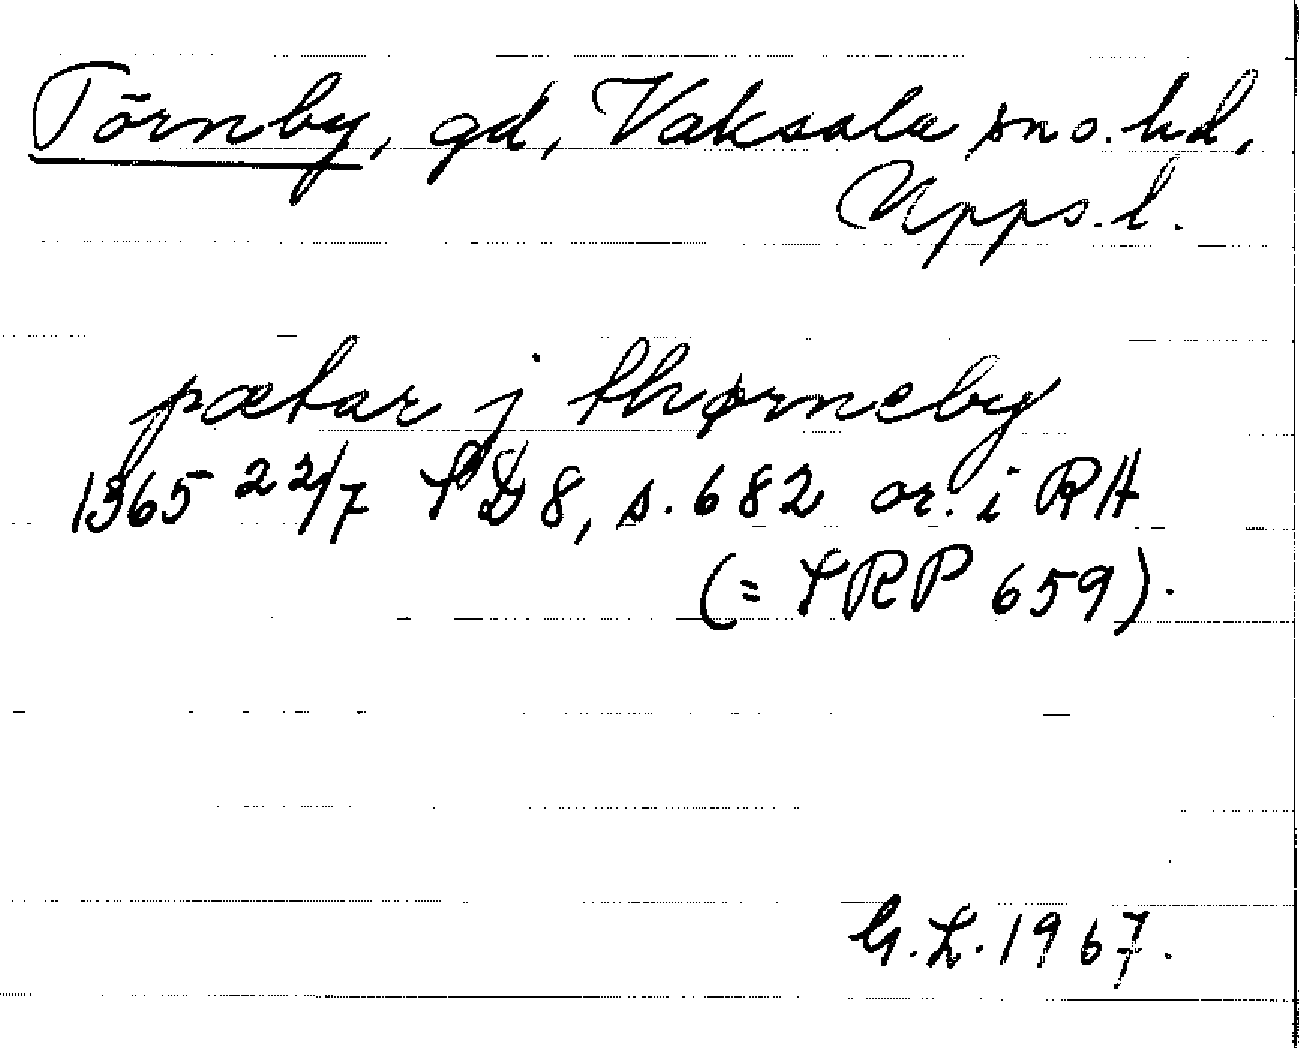 Törnby, gd, Vaksala sn o. hd,
Upps. l.
pætar j thørneby
1365 22/7 SD 8, s. 682 or. i RA
(= SRP 659).
G. L. 1967.